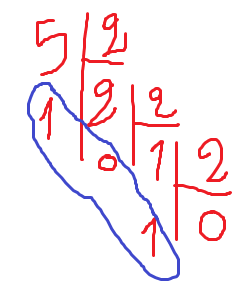 5 2
1 2 2
0 1 2
1 0